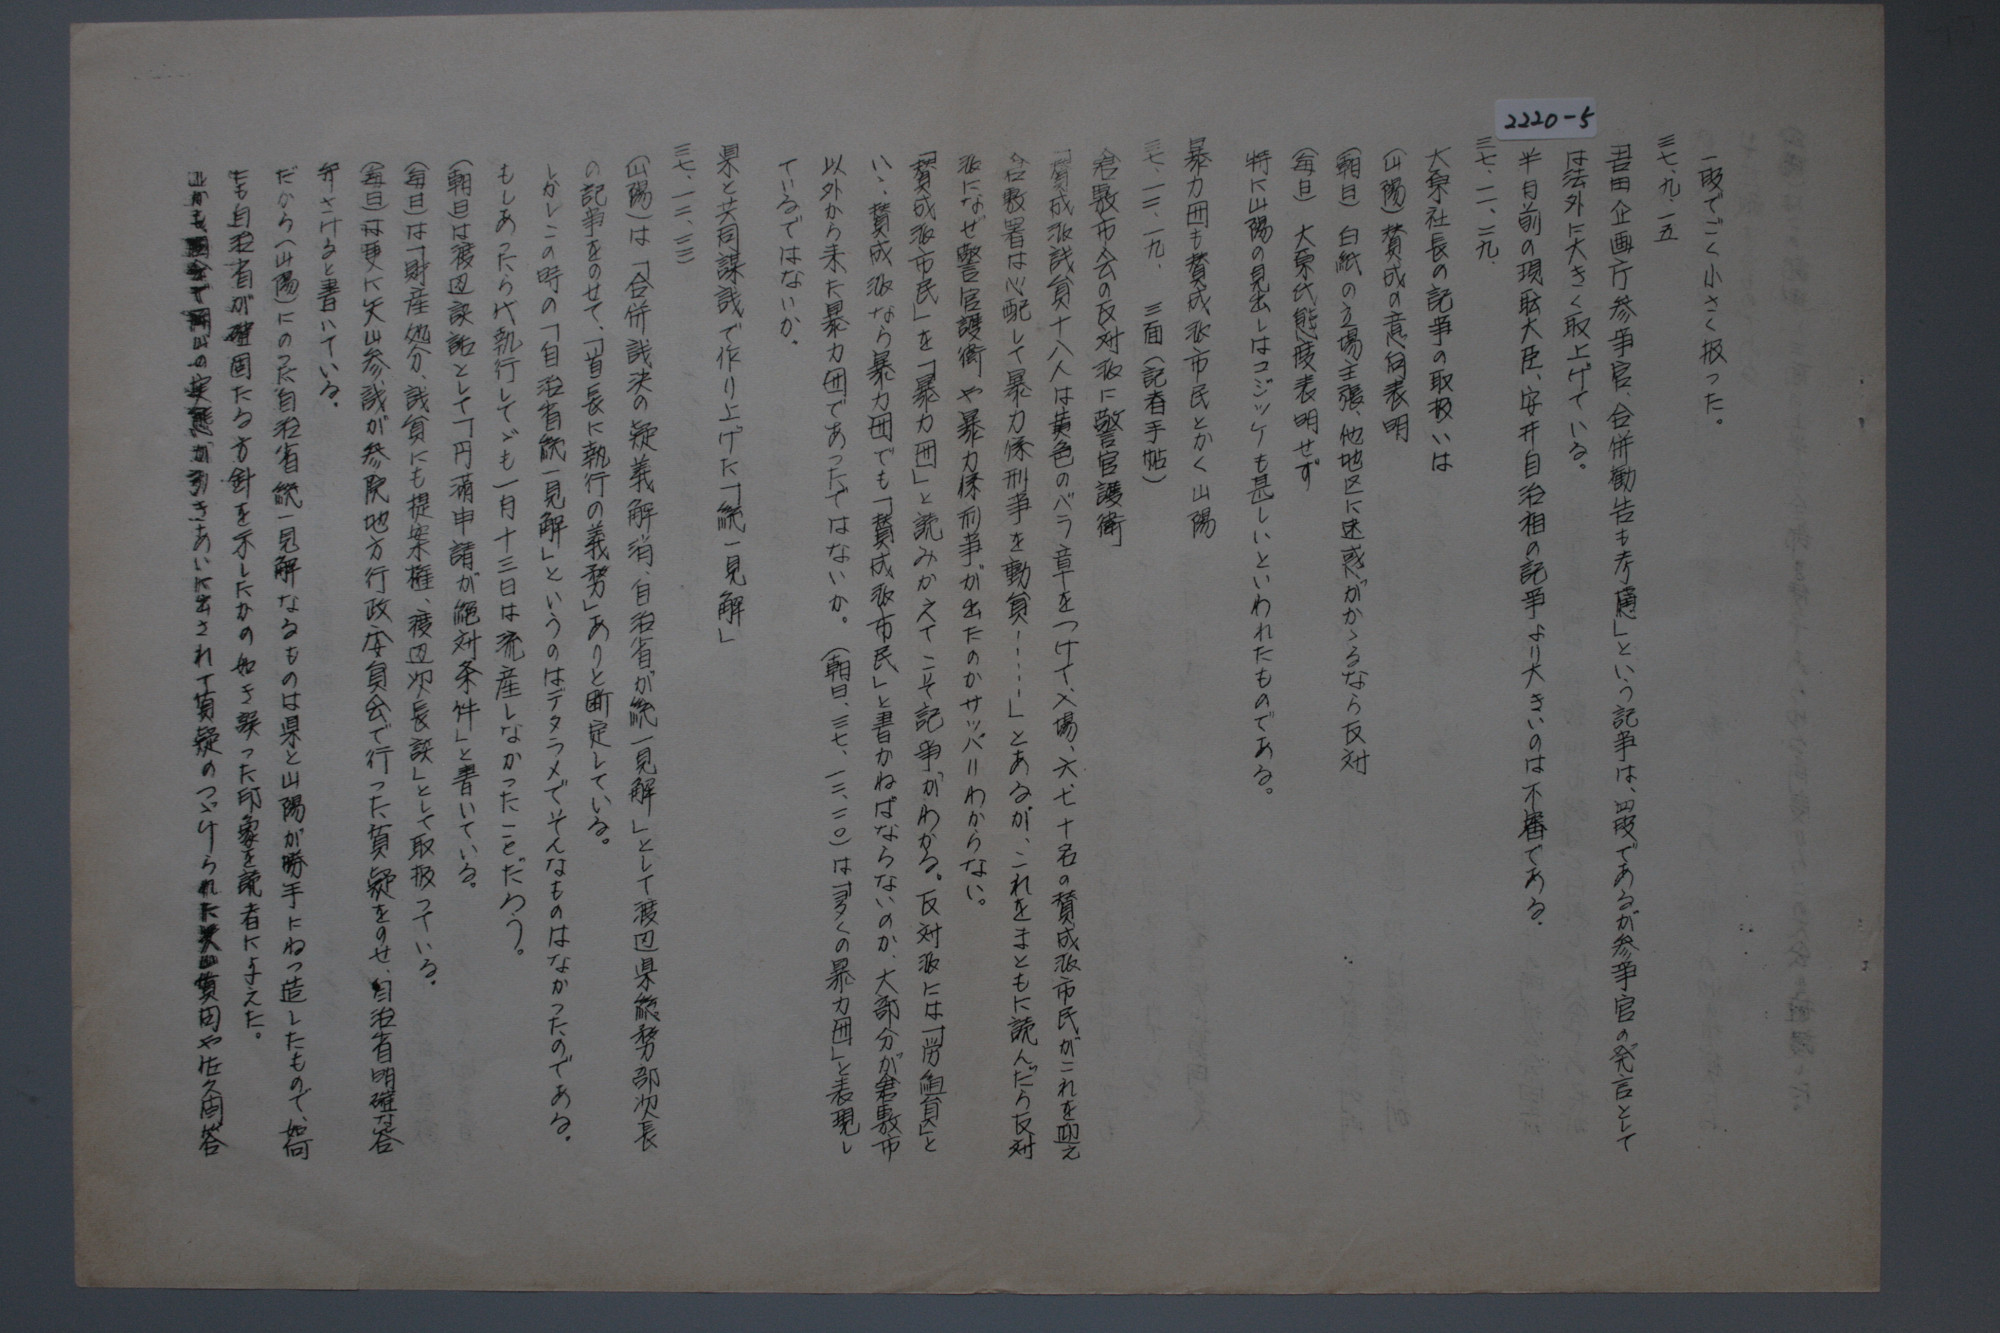 2220-5
一段でごく小さく扱った。
三七、九、一五
吉田企画庁参事官、合併勧告も考慮」という記事は、四段であるが参事官の発言として
は法外に大きく取上げている。
半月前の現職大臣、安井自治相の記事より大きいのは不審である。
三七、一一、二九、
大原社長の記事の取扱いは
(山陽) 賛成の意向表明
(朝日) 白紙の立場主張、他地区に迷惑がかゝるなら反対
(毎日) 大原氏態度表明せず
特に山陽の見出しはコジツケも甚しいといわれたものである。
暴力団も賛成派市民とかく山陽
三七、一二、一九、 三面(記者手帖)
倉敷市会の反対派に警官護衛
「賛成派議員十八人は黄色のバラ章をつけて入場、六、七十名の賛成派市民がこれを迎え
倉敷署は心配して暴力係刑事を動員‥‥‥」とあるが、これをまともに読んだら反対
派になぜ警官護衛や暴力係刑事が出たのかサッパリわからない。
「賛成派市民」を「暴力団」と読みかえてこそ記事がわかる。反対派には「労組員」と
いゝ、賛成派なら暴力団でも「賛成派市民」と書かねばならないのか、大部分が倉敷市
以外から来た暴力団であったではないか。(朝日、三七、一二、二〇)は「多くの暴力団」と表現し
ているではないか。
県と共同謀議で作り上げた「統一見解」
三七、一二、二二
(山陽)は「合併議決の疑義解消、自治省が統一見解」として渡辺県総務部次長
の記事をのせて、「首長に執行の義務」ありと断定している。
しかしこの時の「自治省統一見解」というのはデタラメでそんなものはなかったのである。
もしあったら代執行してゞも一月十三日は流産しなかったことだろう。
(朝日)は渡辺談話として「円満申請が絶対条件」と書いている。
(毎日)は「財産処分、議員にも提案権、渡辺次長談」として取扱っている。
(毎日)は更に矢山参議が参院地方行政委員会で行った質疑をのせ、自治省明確な答
弁さけると書いている。
だから(山陽)にのった自治省統一見解なるものは県と山陽が勝手にねつ造したもので、如何
にも自治省が確固たる方針を示したかの如き誤った印象を読者に与えた。
しかも国会で岡山の実態が引きあいに出されて質疑のつゞけられた矢山質問や佐久間答